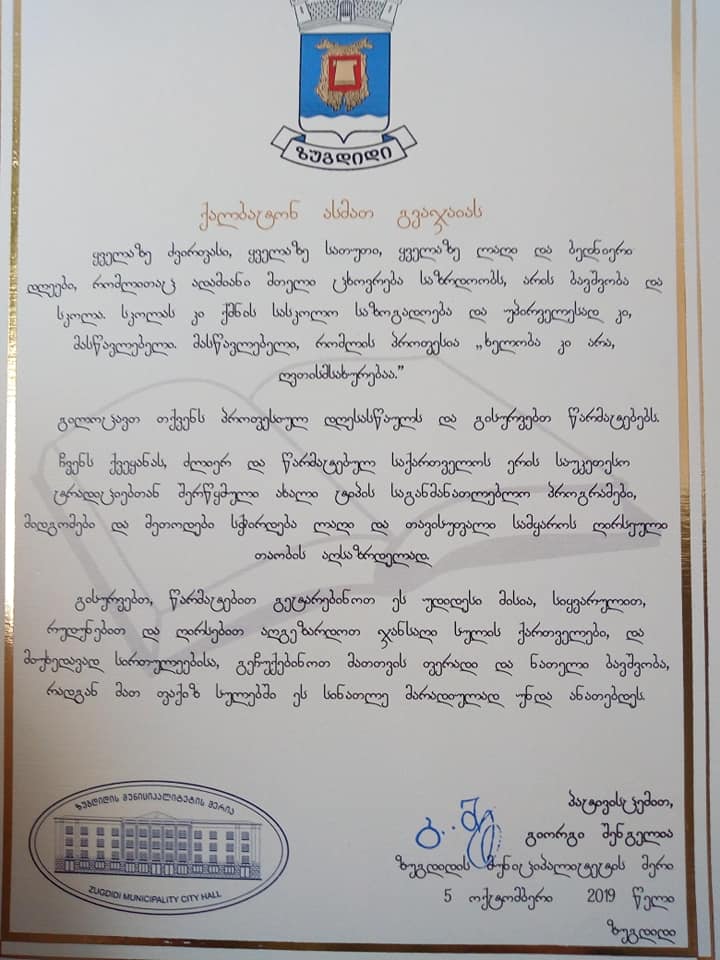 ზუგდიდი
ქალბატონ ასმათ გვაჯაიას
ყველაზე ძვირფასი, ყველაზე სათუთი, ყველაზე ლაღი და ბედნიერი
დღეები, რომლითაც ადამიანი მთელი ცხოვრება საზრდოობს, არის ბავშვობა და
სკოლა. სკოლას კი ქმნის სასკოლო საზოგადოება და უპირველესად კი,
მასწავლებელი. მასწავლებელი, რომლის პროფესია „ხელობა კი არა,
ღვთისმსახურებაა.”
გილოცავთ თქვენს პროფესიულ დღესასწაულს და გისურვებთ წარმატებებს.
ჩვენს ქვეყანას, ძლიერ და წარმატებულ საქართველოს ერის საუკეთესო
ტრადიციებთან შერწყმული ახალი ტიპის საგანმანათლებლო პროგრამები,
მიდგომები და მეთოდები სჭირდება ლაღი და თავისუფალი სამყაროს ღირსეული
თაობის აღსაზრდელად.
გისურვებთ, წარმატებით გეტარებინოთ ეს უდიდესი მისია, სიყვარულით,
რუდუნებით და ღირსებით აღგეზარდოთ ჯანსაღი სულის ქართველები, და
მიუხედავად სირთულეებისა, გეჩუქებინოთ მათთვის ფერადი და ნათელი ბავშვობა,
რადგან მათ ფაქიზ სულებში ეს სინათლე მარადიულად უნდა ანათებდეს.
პატივისცემით,
გიორგი შენგელია
ზუგდიდის მუნიციპალიტეტის მერი
5 ოქტომბერი 2019 წელი
ზუგდიდი
ზუგდიდის მუნიციპალიტეტის მერია
ZUGDIDI MUNICIPALITY CITY HALL